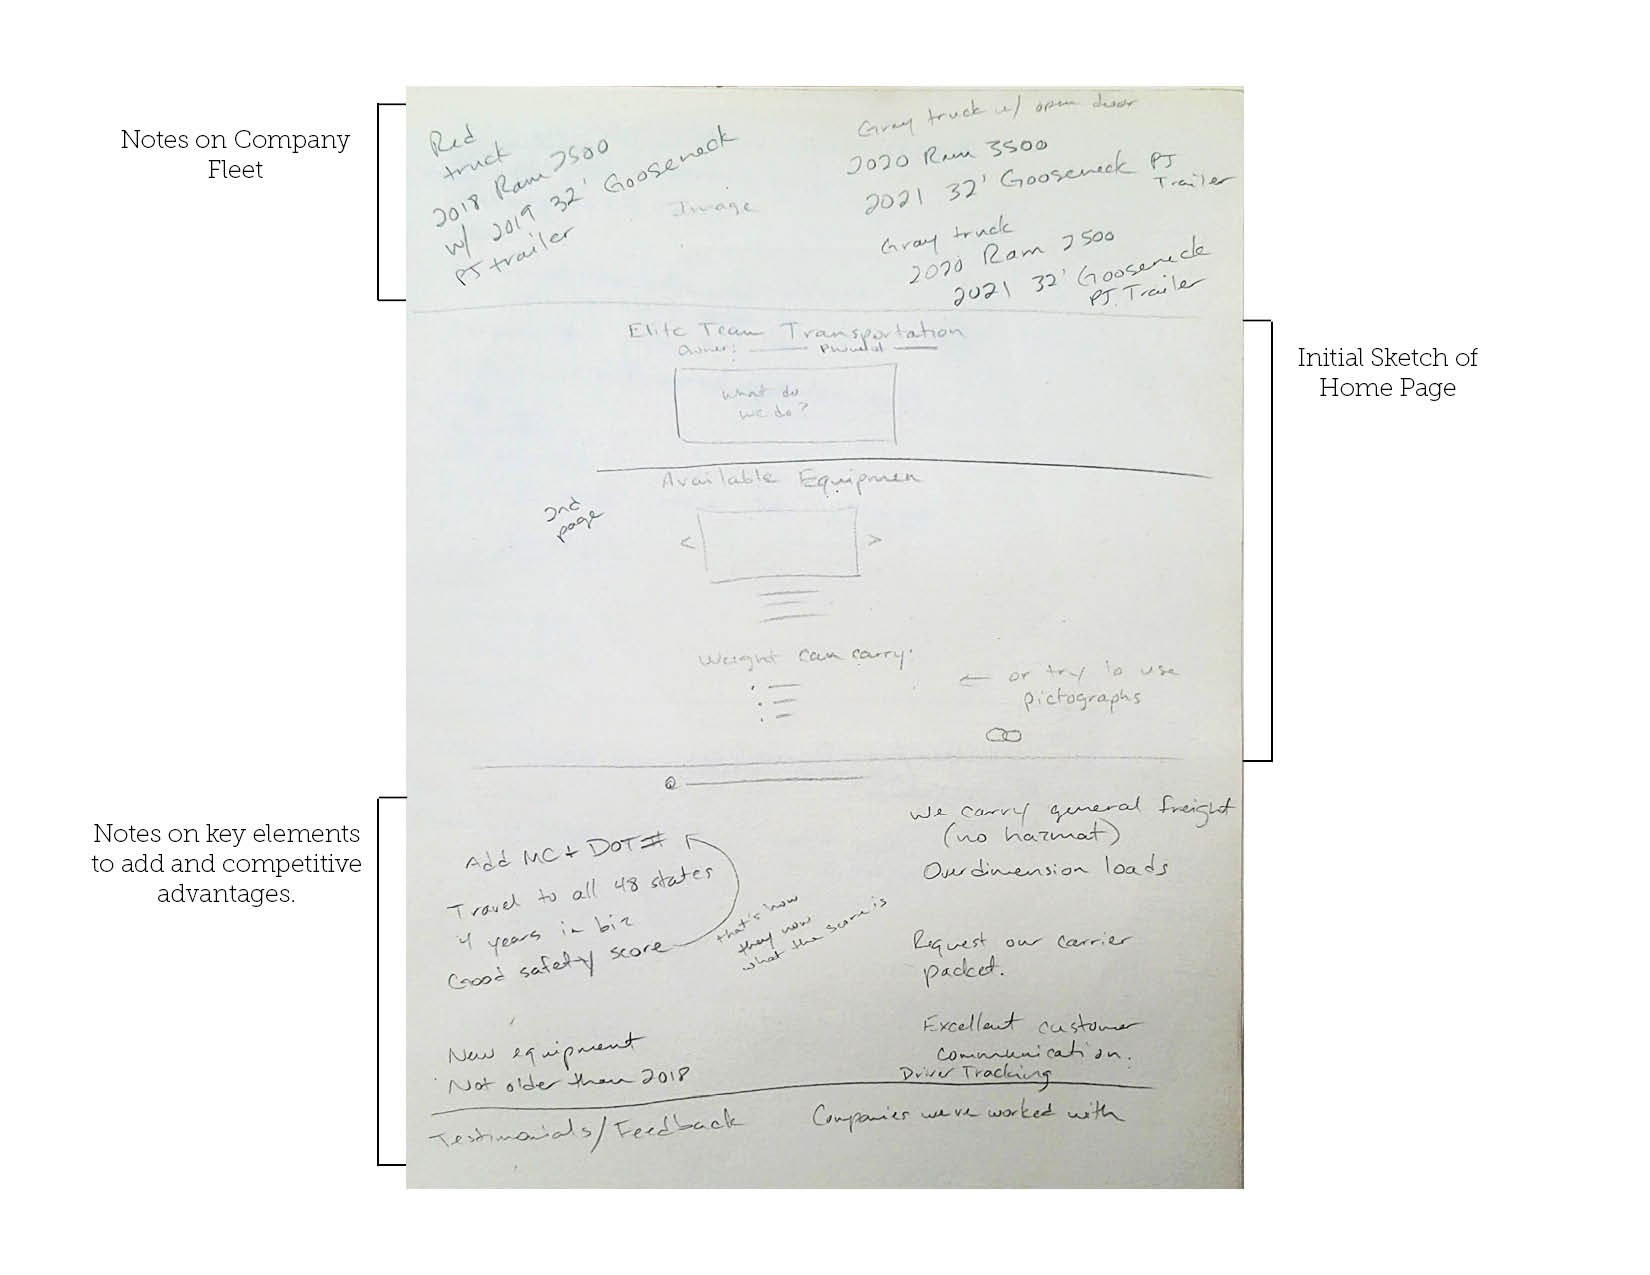 Notes on Company
Fleet
Red
truck
2018 Ram 2500
w/ 2019 32' Gooseneck
PJ trailer
Image
Gray truck w/ open door
2020 Ram 3500
2021 32' Gooseneck PJ
Trailer
Gray truck
2020 Ram 2500
2021 32' Gooseneck
PJ. Trailer
Initial Sketch of
Home Page
Elite Team Transportation
Owner:
What do
we do?
Available Equipmen
2nd
page
< >
Weight can carry:
← or try to use
pictographs
Notes on key elements
to add and competitive
advantages.
Add MC + DOT#
Travel to all 48 states
4 years in biz
Good safety score
that's how
they now
what the score is
New equipment
Not older than 2018
We carry general freight
(no hazmat)
Overdimension loads
Request our carrier
packet.
Excellent customer
communication.
Driver Tracking
Testimonials/Feedback
Companies we've worked with